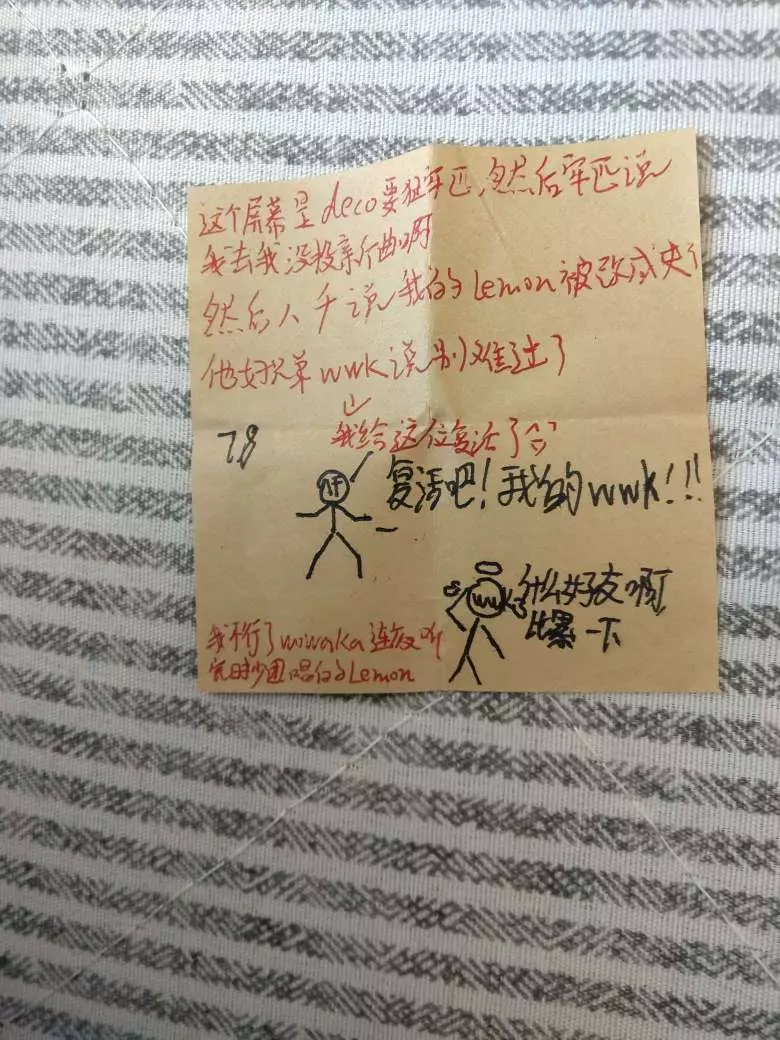 这个屏幕是deco要狂军匹,然后军匹说
我去我没投新曲啊
然后八千说我的Lemon被改成史了
他好兄弟wwk说别难过了
我给这位复活了
78
复活吧!我的wwk!!!
什么好友啊
比累一下
我不行了wowaka连夜听
完时少团唱的Lemon